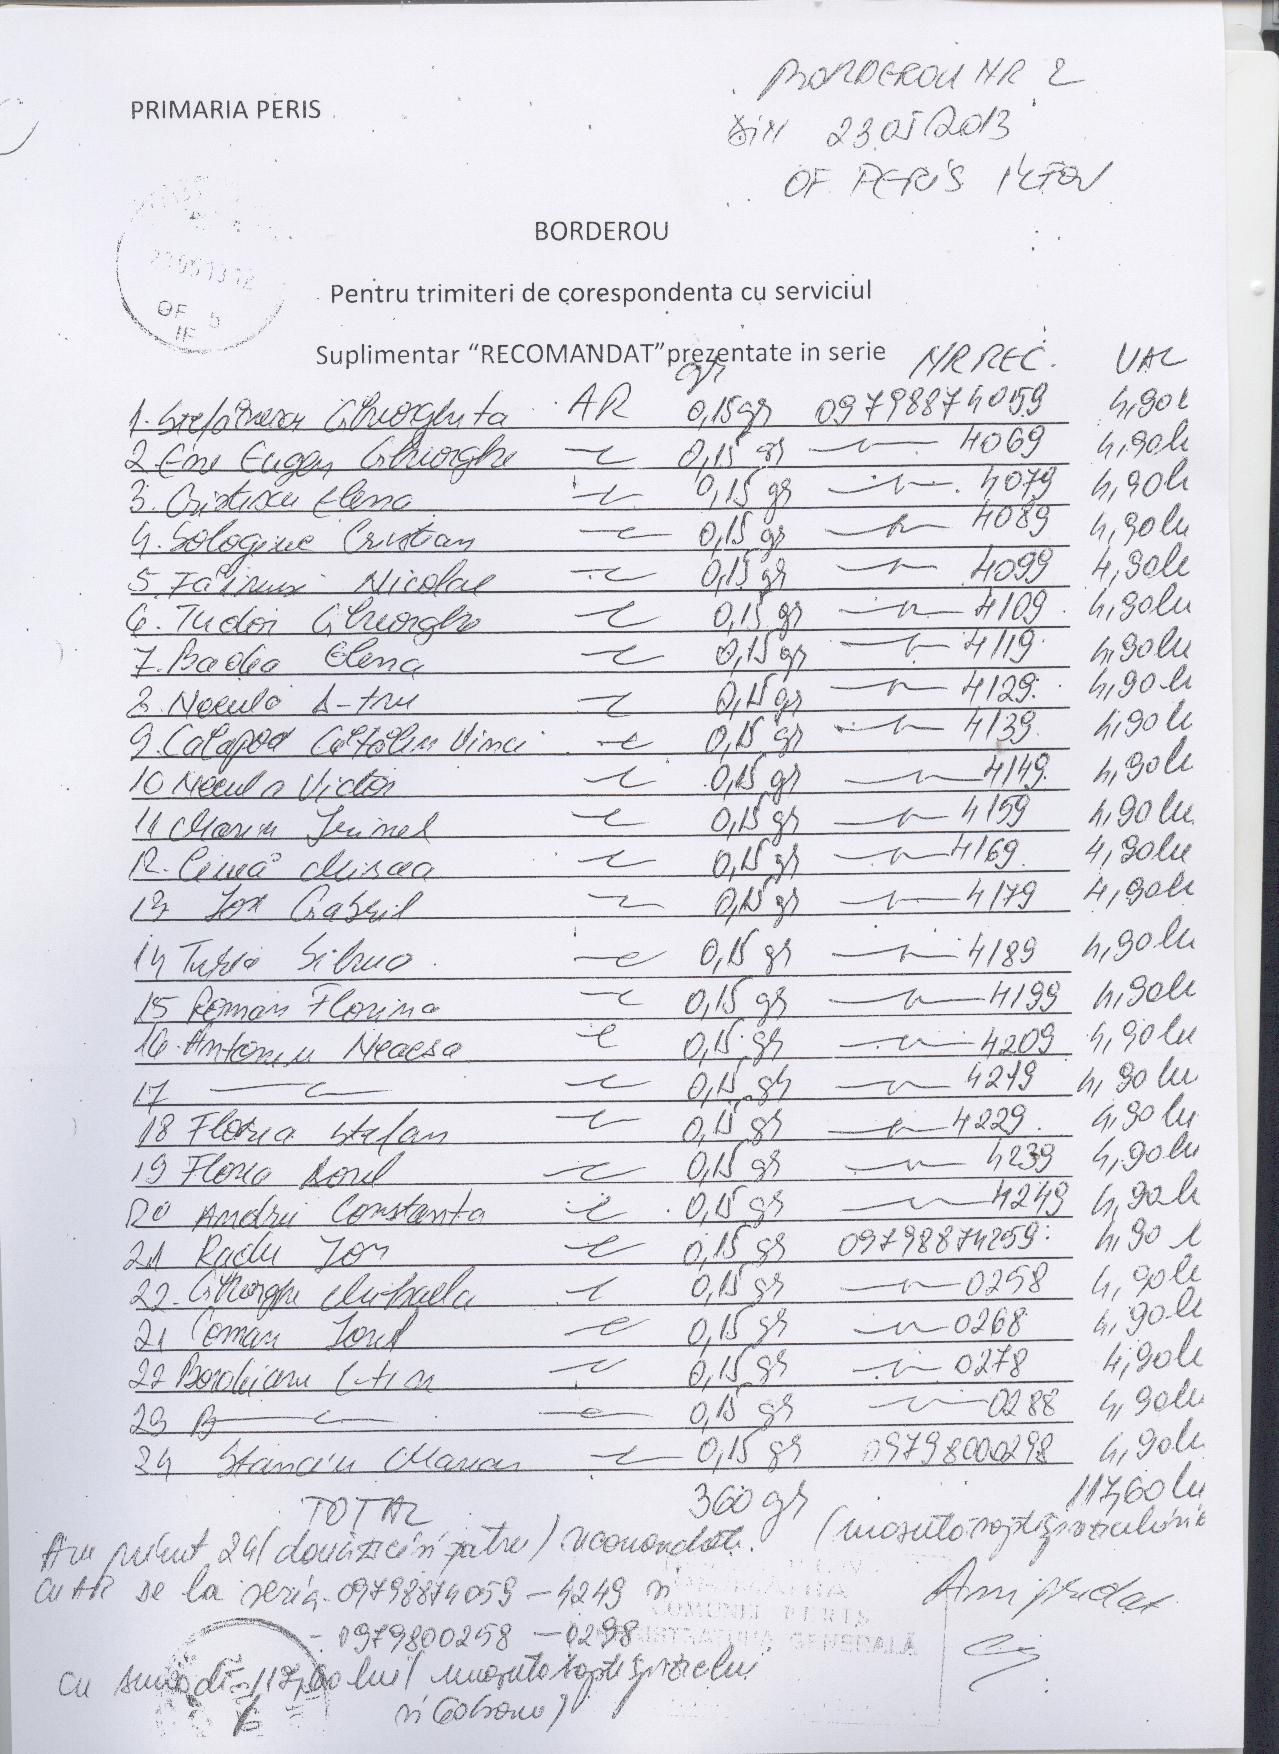 BORDEROU NR 2
PRIMARIA PERIS
DIN 23.05/2013
OF. PERIS ILFOV
BORDEROU
OF 5
IF
Pentru trimiteri de corespondenta cu serviciul
Suplimentar “RECOMANDAT”prezentate in serie NR REC. VAL
gr
1. Gheorghita AR 0,15 gr 09798874059 4,90 l
2. Ene Eugen Gheorghe 0,15 gr 4069 4,90 lei
3. Cristescu Elena 0,15 gr 4079 4,90 lei
4. Cristian 0,15 gr 4089 4,90 lei
5. Nicolae 0,15 gr 4099 4,90 lei
6. Tudor Gheorghe 0,15 gr 4109 4,90 lei
7. Badea Elena 0,15 gr 4119 4,90 lei
8. Necula D-tru 0,15 gr 4129 4,90 lei
9. Calapod Cătălin 0,15 gr 4139 4,90 lei
10 Necula Victor 0,15 gr 4149 4,90 lei
11 Marin 0,15 gr 4159 4,90 lei
12. Mircea 0,15 gr 4169 4,90 lei
13 Ion Gabriel 0,15 gr 4179 4,90 lei
14 0,15 gr 4189 4,90 lei
15 Roman Florina 0,15 gr 4199 4,90 lei
16 Neacsa 0,15 gr 4209 4,90 lei
17 0,15 gr 4219 4,90 lei
18 Florea Stefan 0,15 gr 4229 4,90 lei
19 Florea 0,15 gr 4239 4,90 lei
20 Andrei Constanta 0,15 gr 4249 4,90 lei
21 Radu Ion 0,15 gr 09798874259 4,90 l
22. Gheorghe Mihaela 0,15 gr 0258 4,90 lei
21 Coman Ionel 0,15 gr 0268 4,90 lei
22 0,15 gr 0278 4,90 lei
23 B 0,15 gr 0288 4,90 lei
24 Stanciu Marian 0,15 gr 09798000298 4,90 lei
TOTAL 360 gr 117,60 lei
Am primit 24 (douăzeci si patru) recomandate (unasutasaptesprezecelei si
cu AR de la seria 09798874059 – 4249 si Am predat
COMUNEI PERIS
- 0979800258 – 0298
GENERALĂ
cu suma de 117,60 lei (unasutasaptesprezecelei
si 60 bani)